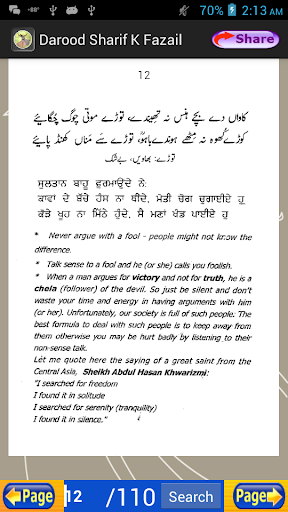 70% 2:13 AM
Darood Sharif K Fazail
Share
12
کاواں دے بچے ہنس نہ تھیندے، توڑے موتی چوگ چگائیے
کوڑے کھوہ نہ مٹھے ہوندے باہوؒ، توڑے سَے مَناں کھنڈ پائیے
توڑے: بھاویں، بےشک
ਸੁਲਤਾਨ ਬਾਹੂ ਫ਼ੁਰਮਾਉਂਦੇ ਨੇ:
ਕਾਵਾਂ ਦੇ ਬੱਚੇ ਹੰਸ ਨਾ ਥੀਂਦੇ, ਮੋਤੀ ਚੋਗ ਚੁਗਾਈਏ ਹੁ
ਕੌੜੇ ਖੂਹ ਨਾ ਮਿੱਠੇ ਹੁੰਦੇ, ਸੈ ਮਣਾਂ ਖੰਡ ਪਾਈਏ ਹੁ
* Never argue with a fool - people might not know the
difference.
* Talk sense to a fool and he (or she) calls you foolish.
* When a man argues for victory and not for truth, he is a
chela (follower) of the devil. So just be silent and don't
waste your time and energy in having arguments with him
(or her). Unfortunately, our society is full of such people. The
best formula to deal with such people is to keep away from
them otherwise you may be hurt badly by listening to their
non-sense talk.
Let me quote here the saying of a great saint from the
Central Asia, Sheikh Abdul Hasan Khwarizmi:
"I searched for freedom
I found it in solitude
I searched for serenity (tranquility)
I found it in silence."
Page 12 /110 Search Page